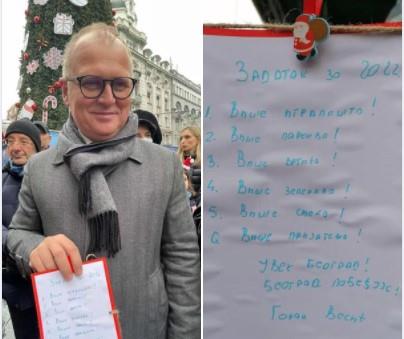 Задаtак за 2022
1. Више игралишта!
2. Више паркова!
3. Више вртића!
4. Више зеленила!
5. Више смеха!
6. Више пријатеља!
Увек Београд!
Београд побеђује!
Горан Весић